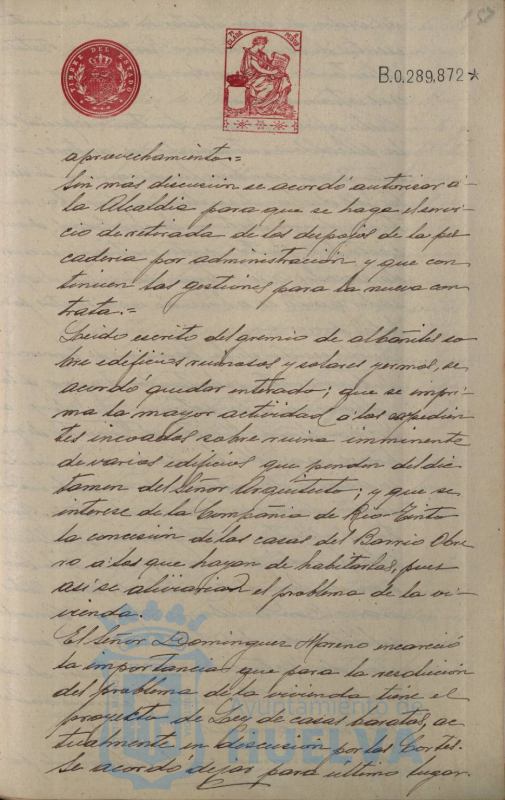 TIMBRE DEL ESTADO
B.0.289,872*
aprovechamiento.=
Sin más discusión se acordó autorizar á
la Alcaldía para que se haga el servi-
cio de retirada de los despojos de la pes
caderia por administración y que con
tinuen las gestiones para la nueva con
trata.=
Leido escrito del gremio de albañiles so
bre edificios ruinosos y solares yermos, se
acordó quedar enterado; que se impri-
ma la mayor actividad á los expedien
tes incoados sobre ruina imminente
de varios edificios que penden del dic
tamen del Señor Arquitecto; y que se
interese de la Compañia de Rio-Tinto
la concesión de las casas del Barrio Obre
ro a los que hayan de habitarlas, pues
asi se aliviaria el problema de la vi-
vienda.
El Señor Dominguez Moreno encareció
la importancia que para la resolución
del problema de la vivienda tiene el
proyecto de Ley de casas baratas, ac
tualmente en discusión por las Cortes.
Se acordó dejar para último lugar
Ayuntamiento de
HUELVA